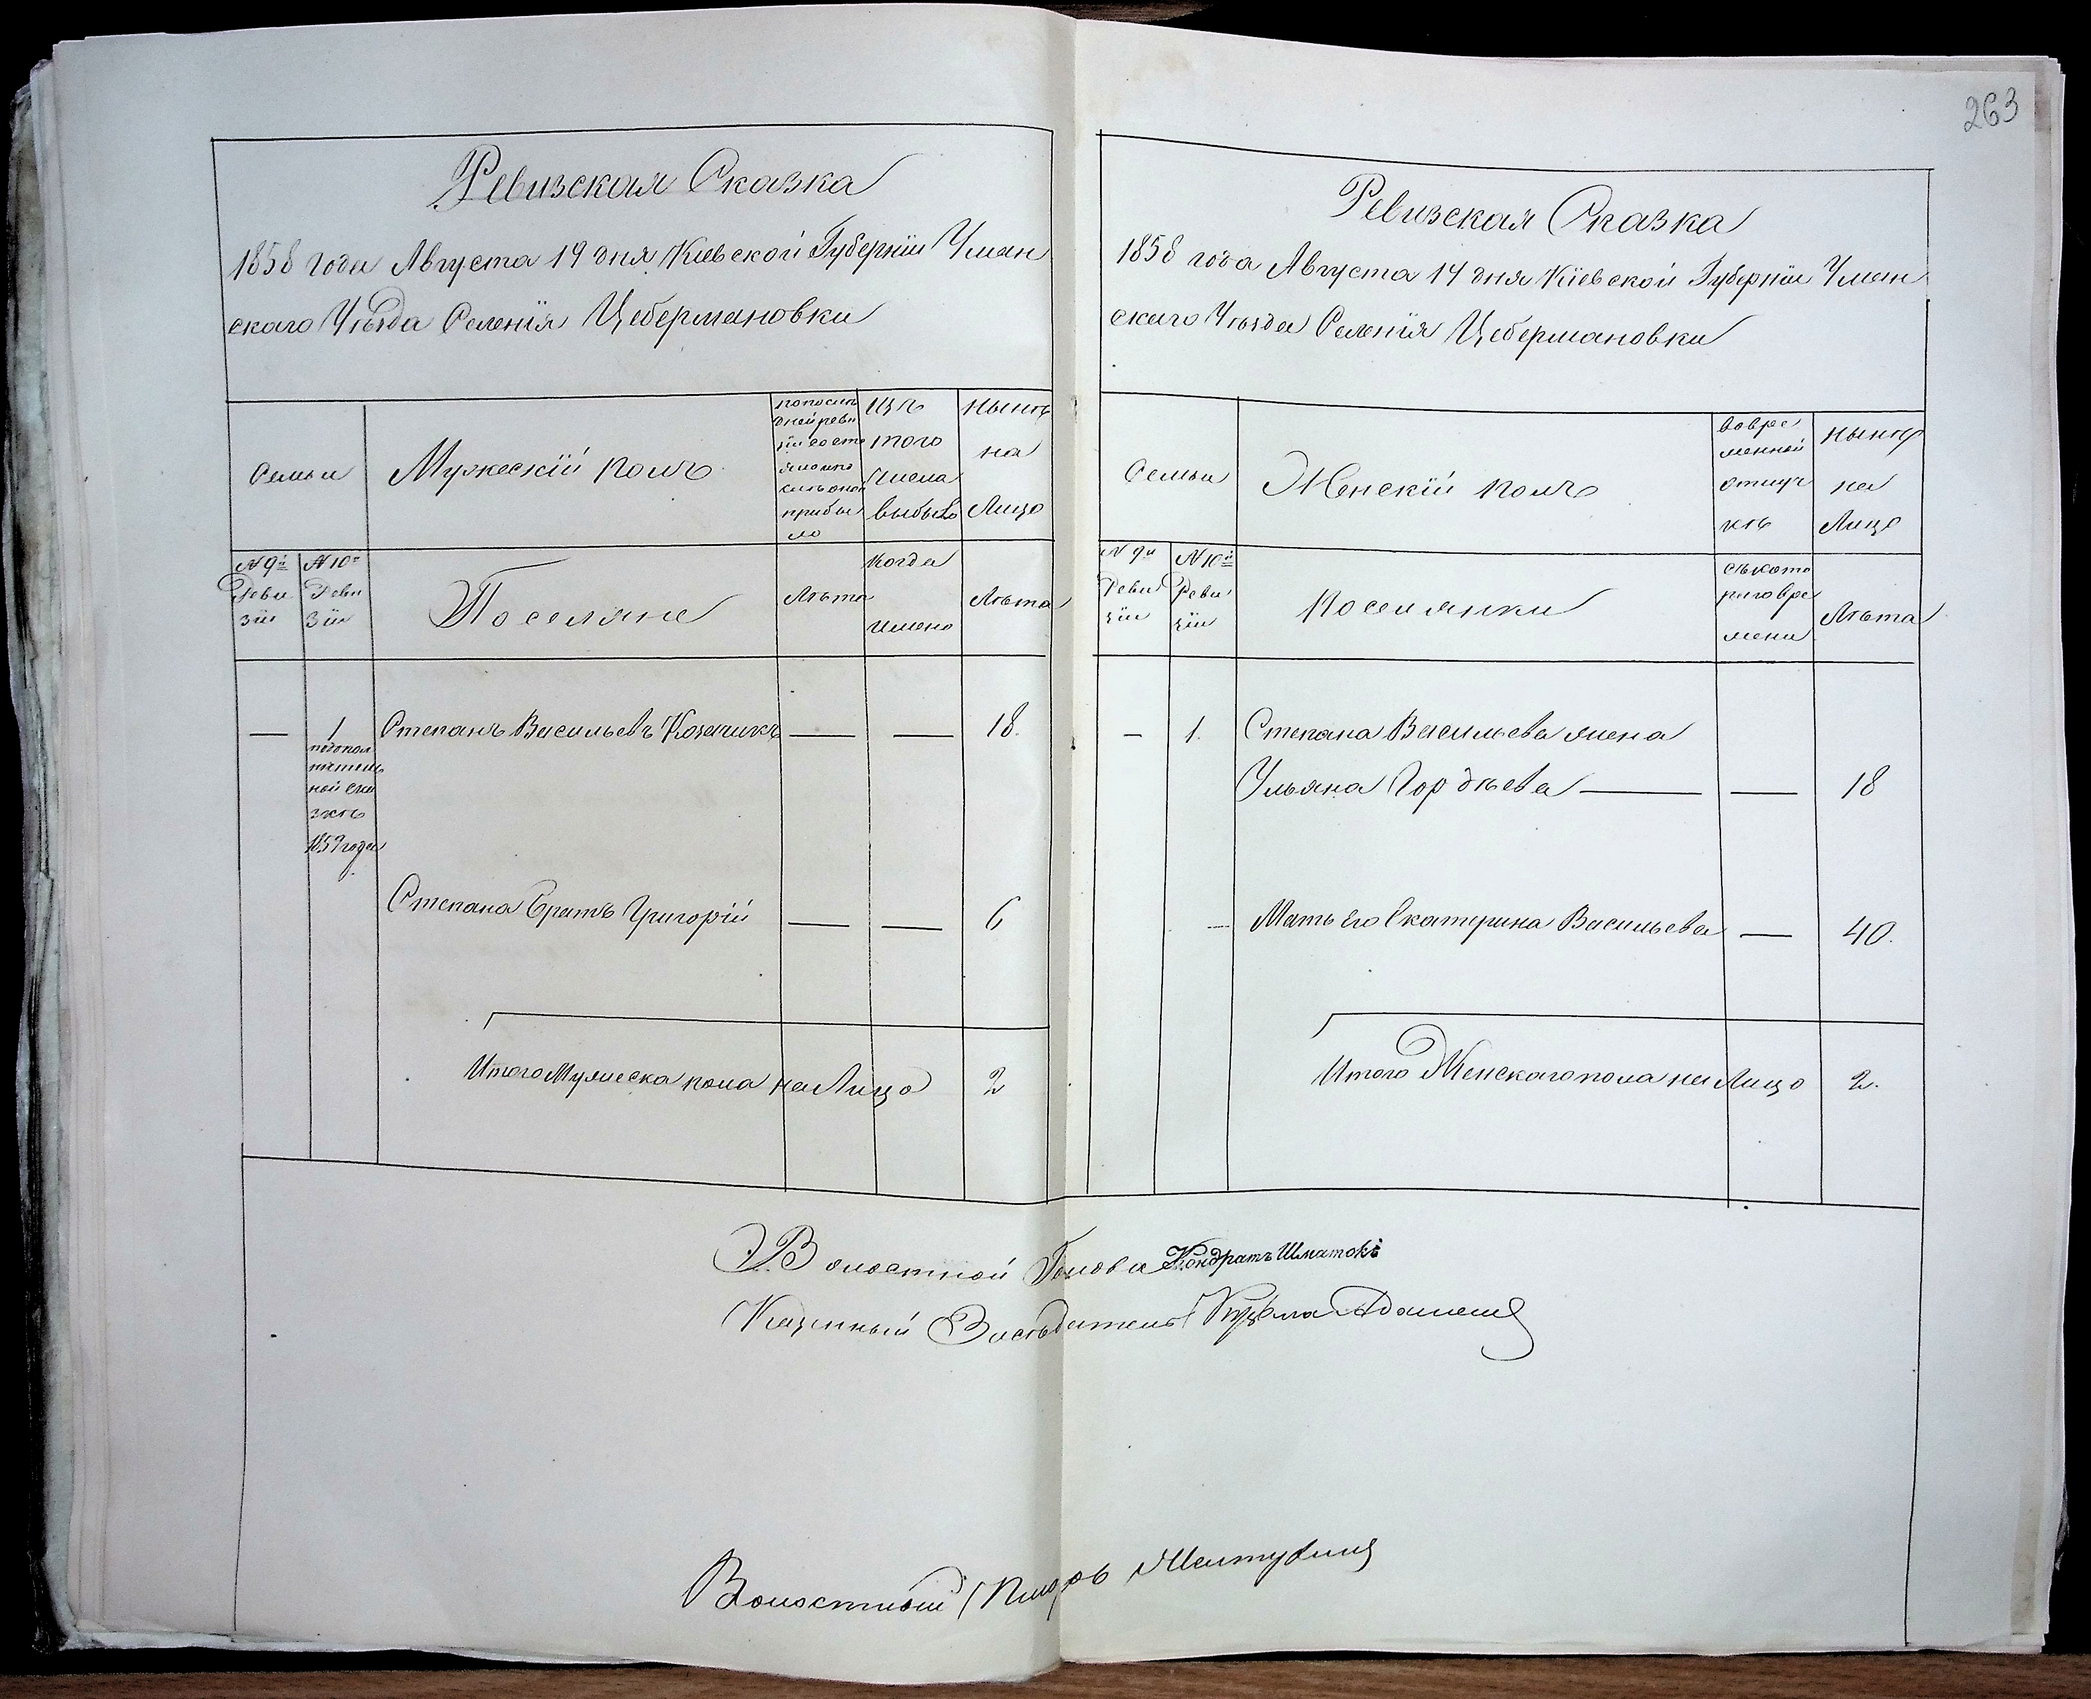 263
Ревизская Сказка
1858 года Августа 19 дня Кіевской Губерніи Уман
скаго Уѣзда Селенія Цебермановки
Семьи
Мужескій полъ
по послѣ
дней реви
зіи состо
яло и по
слѣ оной
прибы
ло
Изъ
того
числа
выбыло
Нынѣ
на
Лицо
№ 9й
Реви
зіи
№ 10й
Реви
зіи
Поселяне
Лѣта
Когда
имено
Лѣта
— 1 Степанъ Васильевъ Козачикъ — — 18.
по допол
нитель
ной ска
зкѣ
1859 года
Степана братъ Григорій — — 6
Итого Мужеска пола на Лицо 2
Ревизская Сказка
1858 года Августа 19 дня Кіевской Губерніи Уман
скаго Уѣзда Селенія Цебермановки
Семьи
Женскій полъ
Во вре
менной
отлуч
кѣ
Нынѣ
на
Лицо
№ 9й
Реви
зіи
№ 10й
Реви
зіи
Поселянки
съ кото
раго вре
мени
Лѣта
— 1. Степана Васильева жена
Ульяна Гордѣева — — 18
— Мать его Екатерина Васильева — 40.
Итого Женскаго пола на Лицо 2.
Волостной Голова Кондратъ Шматокъ
Казенный Засѣдатель Кузьма
Волостный Писарь